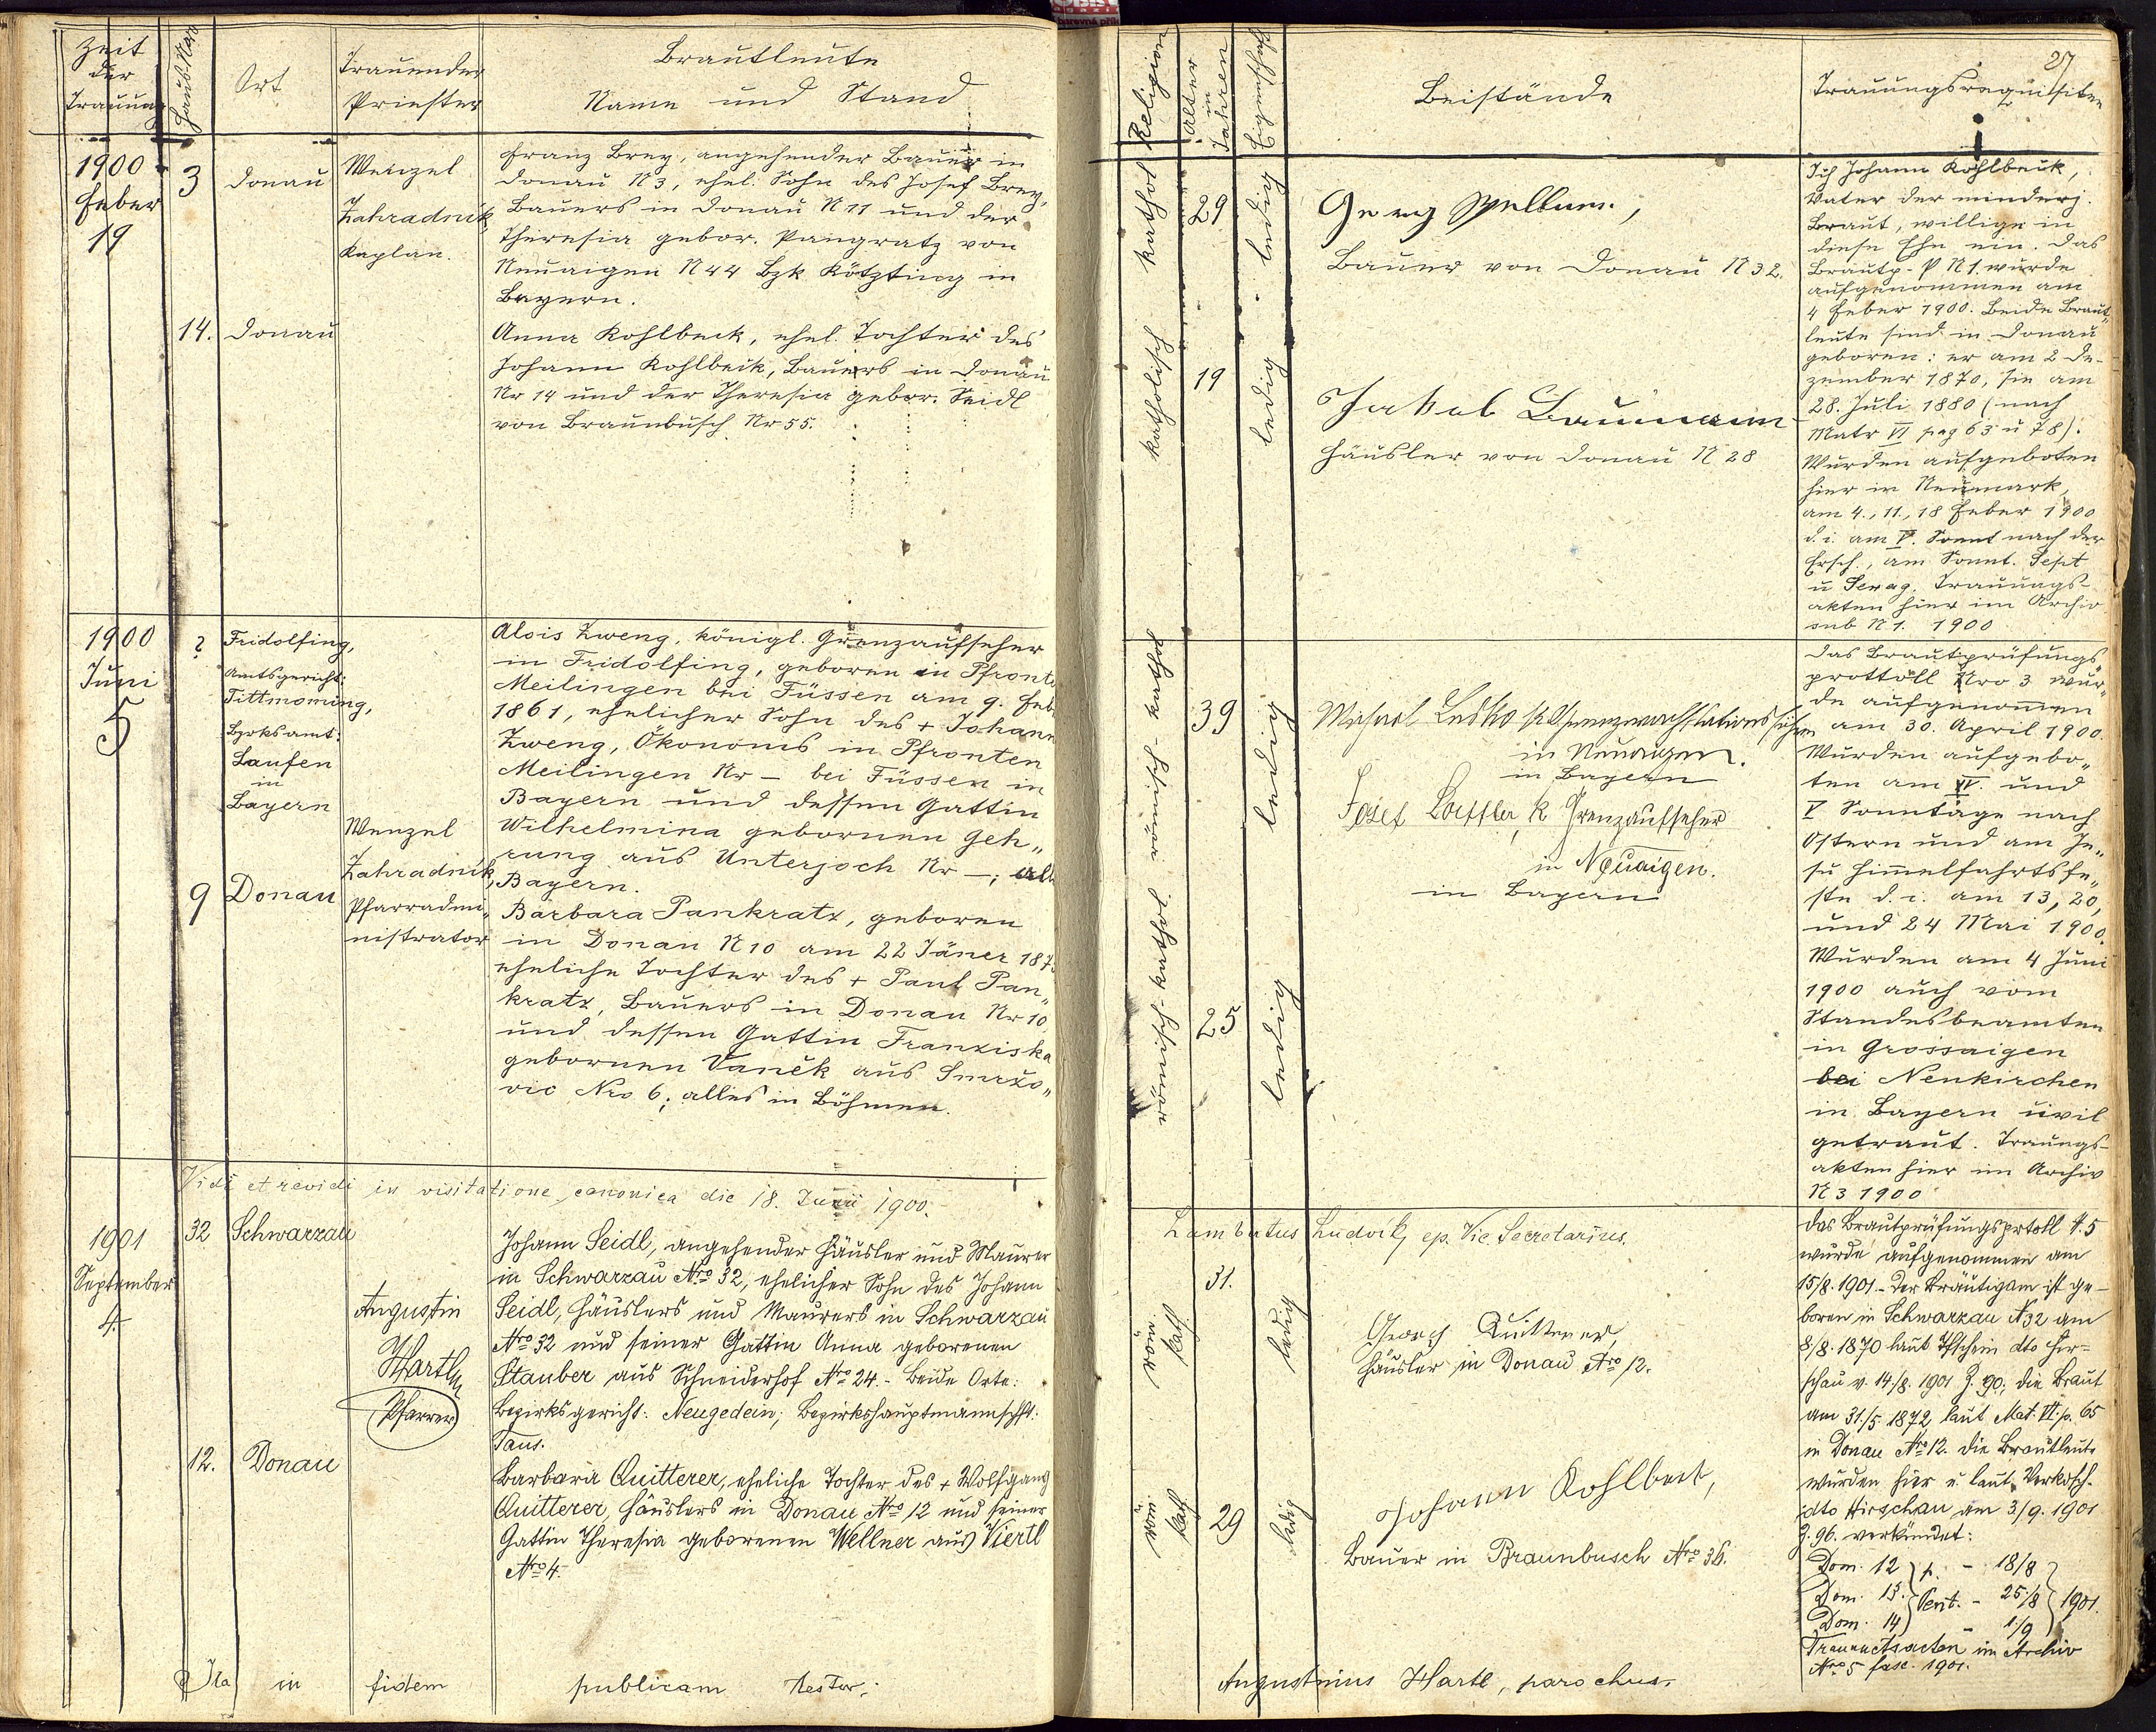 Zeit
der
Trauung
Haus-Nro
Ort
Trauender
Priester
Brautleute
Name und Stand
1900
Feber
19
3
Donau
Wenzel
Zahradník,
Kaplan.
Franz Brey, angehender Bauer in
Donau N 3, ehel. Sohn des Josef Brey,
Bauers in Donau N 11 und der
Theresia gebor. Pangratz von
Neuaigen N 44 Bzk Kötzting in
Bayern.
14. Donau
Anna Kohlbeck, ehel. Tochter des
Johann Kohlbeck, Bauers in Donau
Nr 14 und der Theresia gebor. Seidl
von Braunbusch Nr 55.
1900
Juni
5
?
Fridolfing,
Amtsgericht:
Tittmoning,
Bzrksamt:
Laufen
in
Bayern
Wenzel
Zahradník,
Pfarradmi„
nistrator
Alois Zweng, königl. Grenzaufseher
in Fridolfing, geboren in Pfronten
Meilingen bei Füssen am 9. Feb.
1861, ehelicher Sohn des + Johann
Zweng, Ökonoms in Pfronten
Meilingen Nr – bei Füssen in
Bayern und dessen Gattin
Wilhelmina gebornen Geh„
rung aus Unterjoch Nr –; all
Bayern.
9 Donau
Barbara Pankratz, geboren
in Donau N 10 am 22 Jäner 187
eheliche Tochter des + Paul Pan„
kratz, Bauers in Donau Nr 10,
und dessen Gattin Franziska
gebornen Vaněk aus Smržo„
vic Nro 6; alles in Böhmen.
Vidi et revidi in visitatione canonica die 18. Junii 1900.
1901
September
4.
32 Schwarzau
Augustin
Hartl
Pfarrer
Johann Seidl, angehender Häusler und Maurer
in Schwarzau Nro 32, ehelicher Sohn des Johann
Seidl, Häuslers und Maurers in Schwarzau
Nro 32 und seiner Gattin Anna geborenen
Stauber aus Schneiderhof Nro 24. - Beide Orte:
Bezirksgericht: Neugedein; Bezirkshauptmannschft:
Taus.
12. Donau
Barbara Quitterer, eheliche Tochter des + Wolfgang
Quitterer, Häuslers in Donau Nro 12 und seiner
Gattin Theresia geborenen Wellner aus Viertl
Nro 4.
Ita in fidem publicam testor:
Religion
Alter
in
Jahren
Eigenschaft
Beistände
Trauungsrequisiten
27
kathol
29
ledig
Georg
Bauer von Donau N 32.
katholisch
19
ledig
Jakob Baumann
Häusler von Donau N 28
Ich Johann Kohlbeck,
Vater der minderj.
Braut, willige in
diese Ehe ein. Das
Brautp-P N 1. wurde
aufgenommen am
4 Feber 1900. Beide Braut„
leute sind in Donau
geboren: er am 2 De-
zember 1870, sie am
28. Juli 1880 (nach
Matr VI pag 63 u 78).
Wurden aufgeboten
hier in Neumark,
am 4., 11., 18 Feber 1900
d. i. am V. Sonnt nach der
Ersch., am Sonnt. Sept
u Sexag. Trauungs-
akten hier im Archiv
sub N 1. 1900
römisch-kathol
39
ledig
Michael Lesko k. Grenzwachstationsführer
in Neuaigen.
in Bayern
Josef Loeffler, k Grenzaufseher
in Neuaigen.
in Bayern
römisch-kathol.
25
ledig
Das Brautprüfungs„
prottoll Nro 3 wur„
de aufgenommen
am 30. April 1900.
Wurden aufgebo„
ten am IV. und
V Sonntage nach
Ostern und am Je„
su Himmelfahrtsfe„
ste d. i. am 13, 20,
und 24 Mai 1900.
Wurden am 4 Juni
1900 auch vom
Standesbeamten
in Grossaigen
bei Neukirchen
in Bayern civil
getraut. Trauungs-
akten hier im Archiv
N 3 1900
Lambertus Ludvik, ep. Vic. Secretarius.
röm.
kath
31.
ledig
Georg Quitterer,
Häusler in Donau Nro 12.
röm
kath
29
ledig
Johann Kohlbeck,
Bauer in Braunbusch Nro 36.
Das Brautprüfungsprtokll N. 5
wurde aufgenommen am
15/8. 1901. - Der Bräutigam ist ge-
boren in Schwarzau N 32 am
8/8. 1870 laut Tfschein dto Hir-
schau v. 14/8. 1901 Z. 90; die Braut
am 31./5. 1872 laut Mat. VI. p. 65
in Donau Nro 12. Die Brautleute
wurden hier u. laut Verkdsch.
dto Hirschau am 3/9. 1901
Z. 96. verkündet:
Dom. 12 p. - 18/8
Dom. 13. Pent. - 25/8 1901.
Dom. 14 - 1/9
Trauungsacten im Archiv
Nro 5 fasc. 1901.
Augustinus Hartl, parochus.